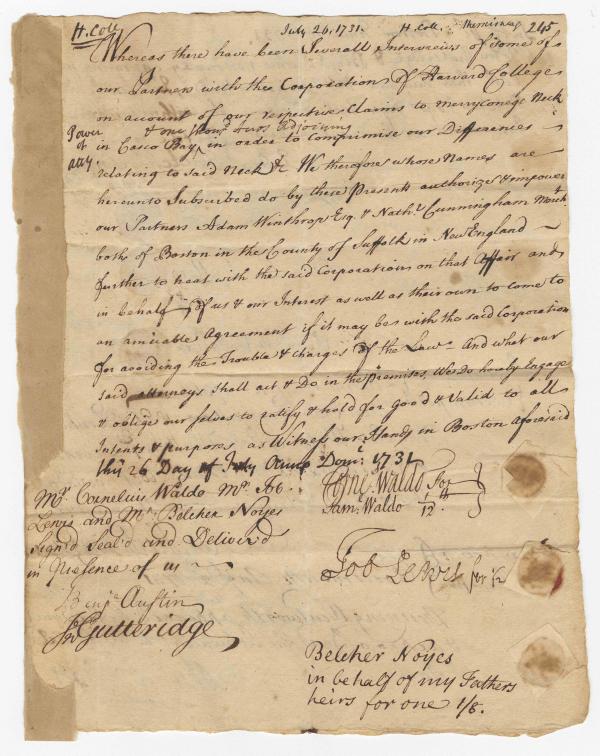 H. Coll.
July 26, 1731.
H. Coll.
245
Whereas there have been Severall Interviews of some of
our Partners with the Corporation of Harvard College
on account of our respective Claims to merryconege Neck
& one thous.d acres adjoining
in Casco Bay, in order to Compromise our Differences
Power
of
atty.
relating to said Neck &c. We therefore whose Names are
hereunto Subscribed do by these Presents authorize & impower
our Partners Adam Winthrop Esq. & Nath.l Cunningham Merch.t
both of Boston in the County of Suffolk in New England
further to treat with the said Corporation on that Affair and
in behalf of us & our Interest as well as their own to come to
an amicable Agreement if it may be with the said Corporation
for avoiding the Trouble & Charges of the Law. And what our
said attorneys shall act & Do in the premises, We Do hereby Engage
& oblige our selves to ratify & hold for Good & Valid to all
Intents & purposes as Witness our Hands in Boston aforesaid
this 26 Day of July Anno Dom.i 1731
Mr. Cornelius Waldo Mr. Job
Lewis and Mr. Belcher Noyes
Sign'd Seal'd and Deliver'd
in Presence of us
Benj.a Austin
Jn.o Gutteridge
Corne. Waldo for
Sam: Waldo 1/12th
Job Lewis for 1/12
Belcher Noyes
in behalf of my Fathers
heirs for one 1/8.